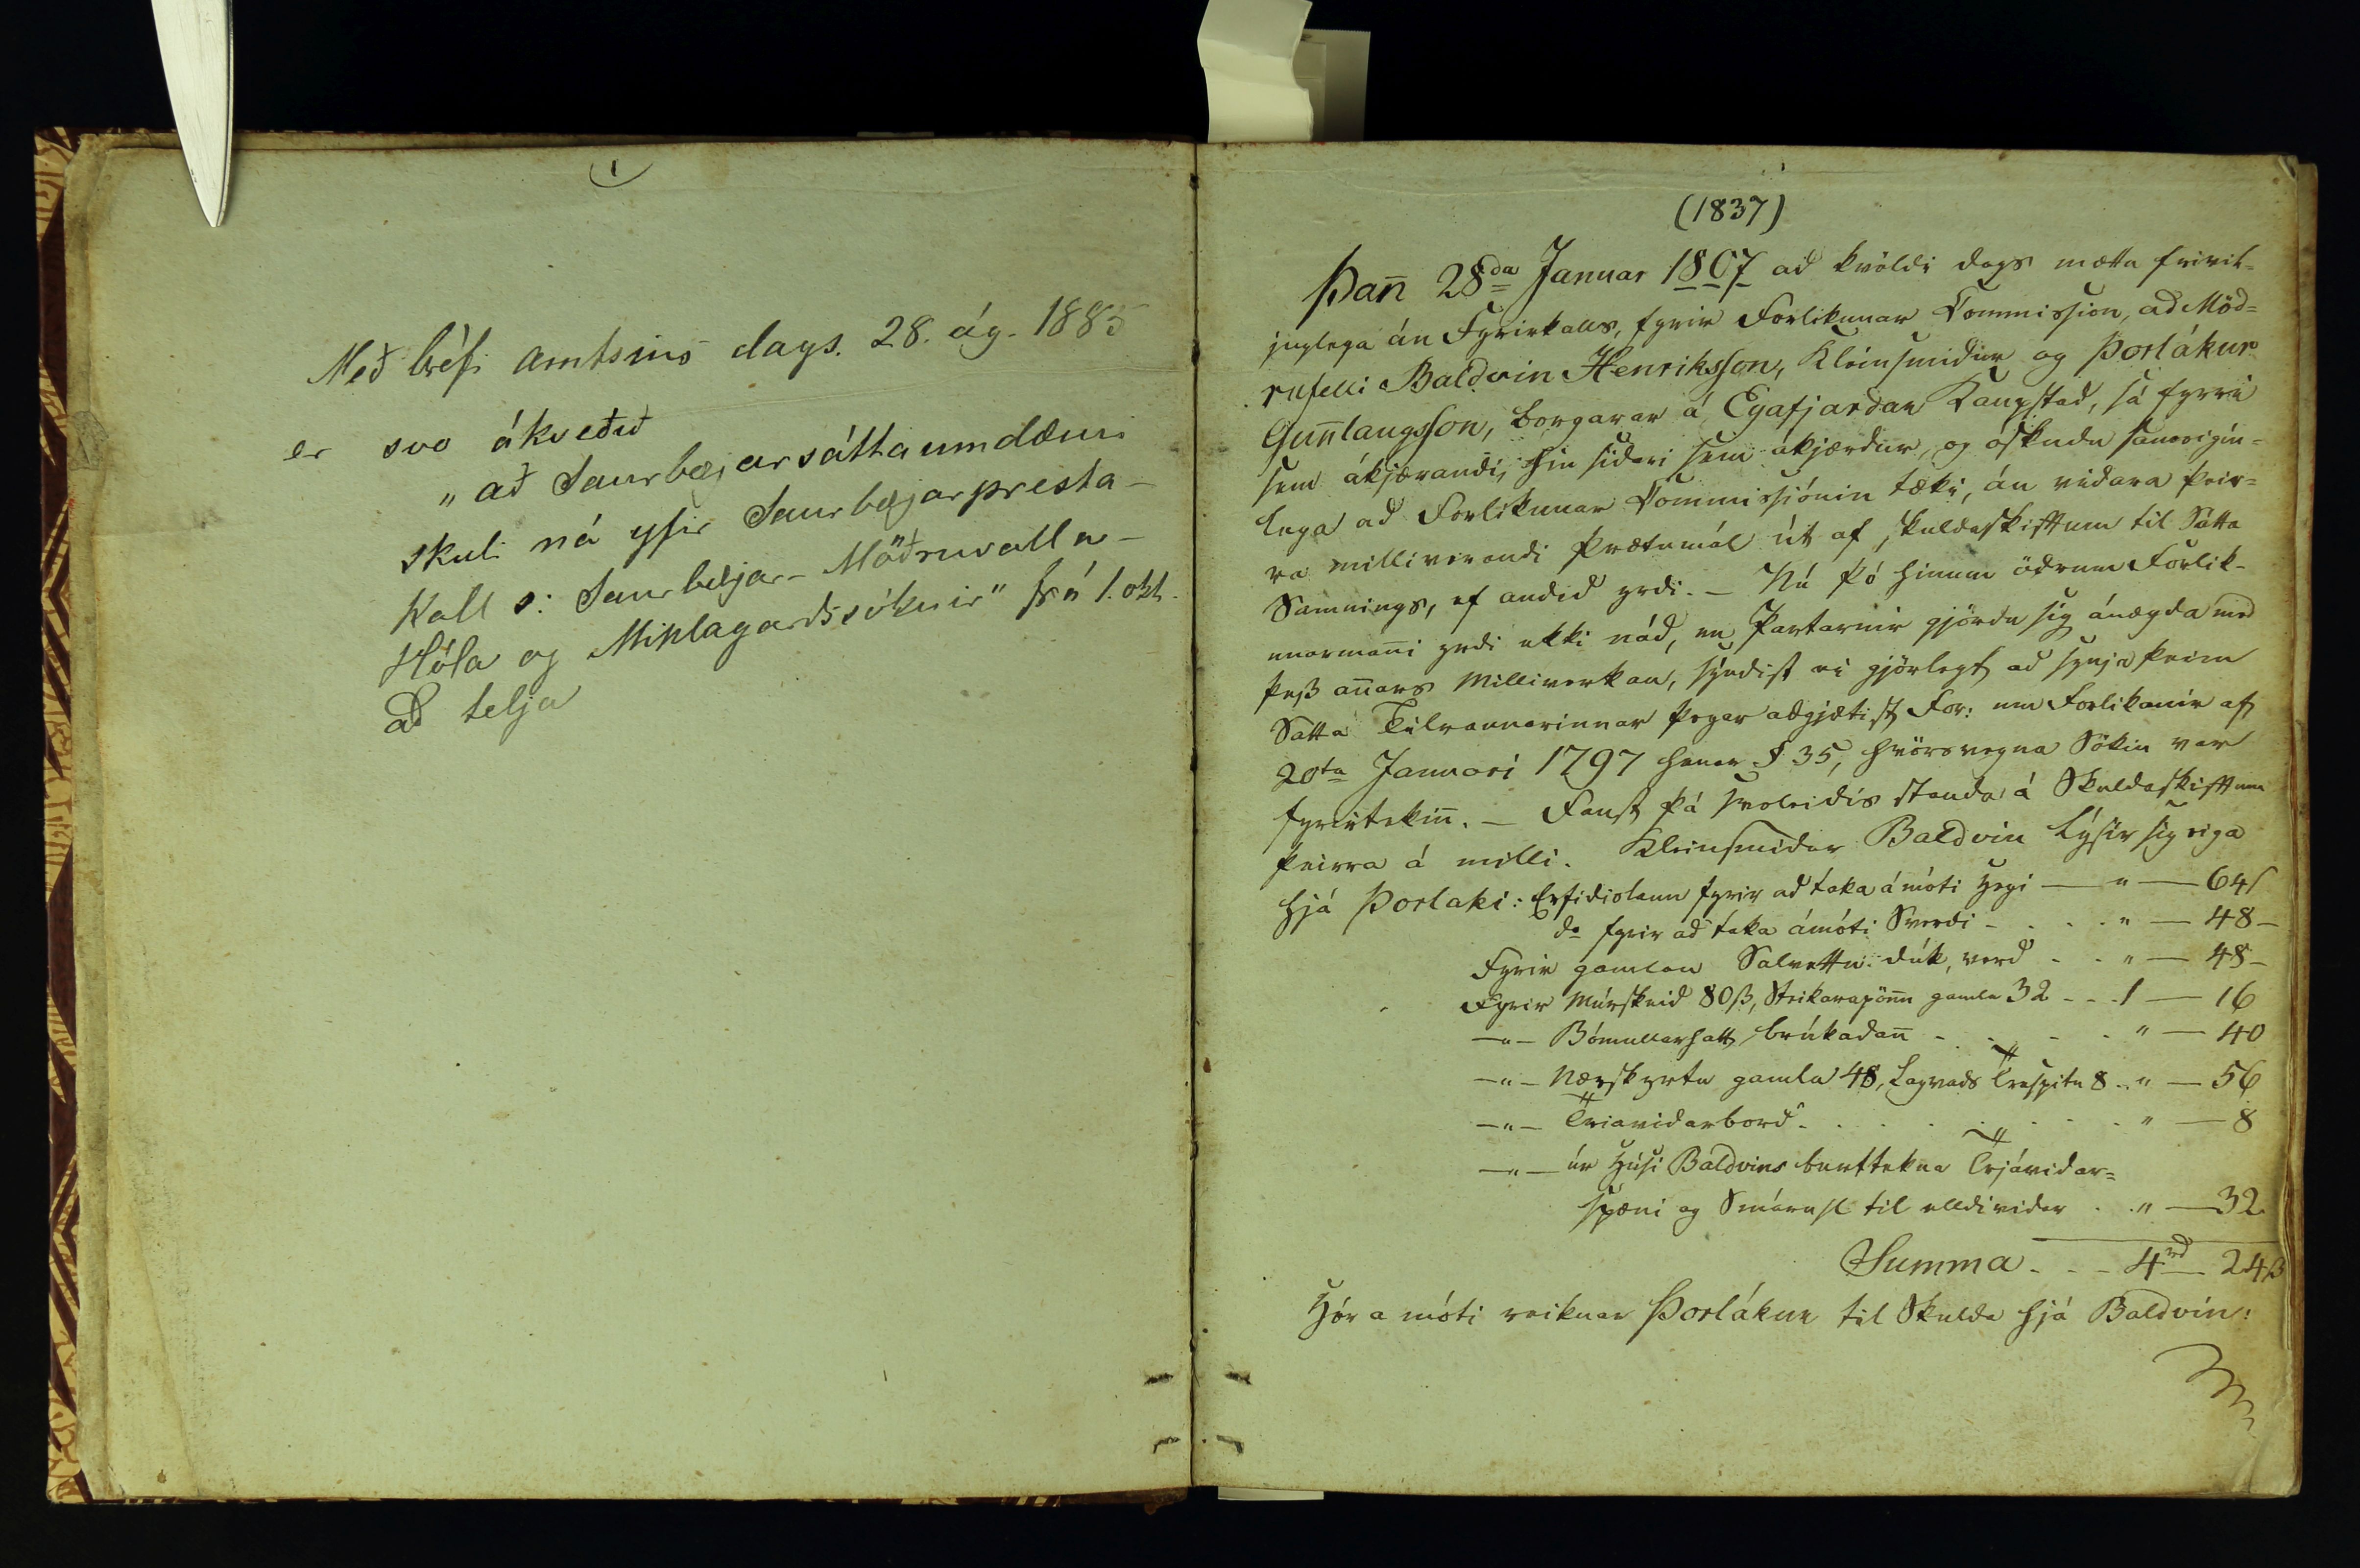 1
Með bréfi amtsins dags. 28. ág. 1885
er svo ákveðið
„að Saurbæjarsáttaumdæmi
skuli ná yfir Saurbæjarpresta-
kall ɔ: Saurbæjar- Möðruvalla-
Hóla og Miklagarðssóknir" frá 1. okt.
að telja
(1837)
Þan̄ 28da Januar 1807 ad kvöldi dags mættu frivil=
juglega án Fyrirkalls, fyrir Forlikunar Commission, ad Möd=
rufelli Baldvin Henriksson, Kleinsmidur og Þorlákur
Gun̄laugsson, borgarar á Eyafjardar Kaupstad, sá fyrri
sem ákjærandi, hin sídari sem ákjærdur, og óskudu sameigin=
lega ad Forlikunar Commissiónin tæki, án vidara þeir=
ra milliverandi þrætumál út af skuldaskiftum til Sátta
Samnings, ef audid yrdi. – Nú þó hinum ödrum Forlik-
unarman̄i yrdi ekki nád, en Partarnir gjördu sig ánægda med
þess an̄ars Milliverkan, syndist ei gjörlegt ad synja þeim
Sátta Tilraunarinnar þegar adgjætist For: um Forlikanir af
20ta Januari 1797 hennar § 35, hvörsvegna Sökin var
fyrirtekin̄. – Fanst þá svoleidis standa á Skuldaskiftum
þeirra á milli. Kleinsmidur Baldvin lýsir sig eiga
hjá Þorlaki: Erfidislaun fyrir ad taka á móti Heyi — „ — 64 ß
do fyrir ad taka ámóti Sverdi - . . . „ — 48 –
Fyrir gamlan Salvettu-dúk, verd . . „ — 48 –
Fyrir Múrskeid 80 ß, Steikarapön̄u gamla 32 - - 1 — 16
—„— Bómullarhatt, brúkadan̄ - . . - . „ — 40
—„— Nærskyrtu gamla 48, Lagvads Trespitu 8 . „ — 56
—„— Triavidarbord . . . . . . . „ — 8
—„— úr Húsi Baldvins burttekna Trjávidar=
spæni og Smárusl til elldividar . . „ — 32.
Summa - - - 4rd — 24 ß
Hér a móti reiknar Þorlákur til Skulda hjá Baldvin: